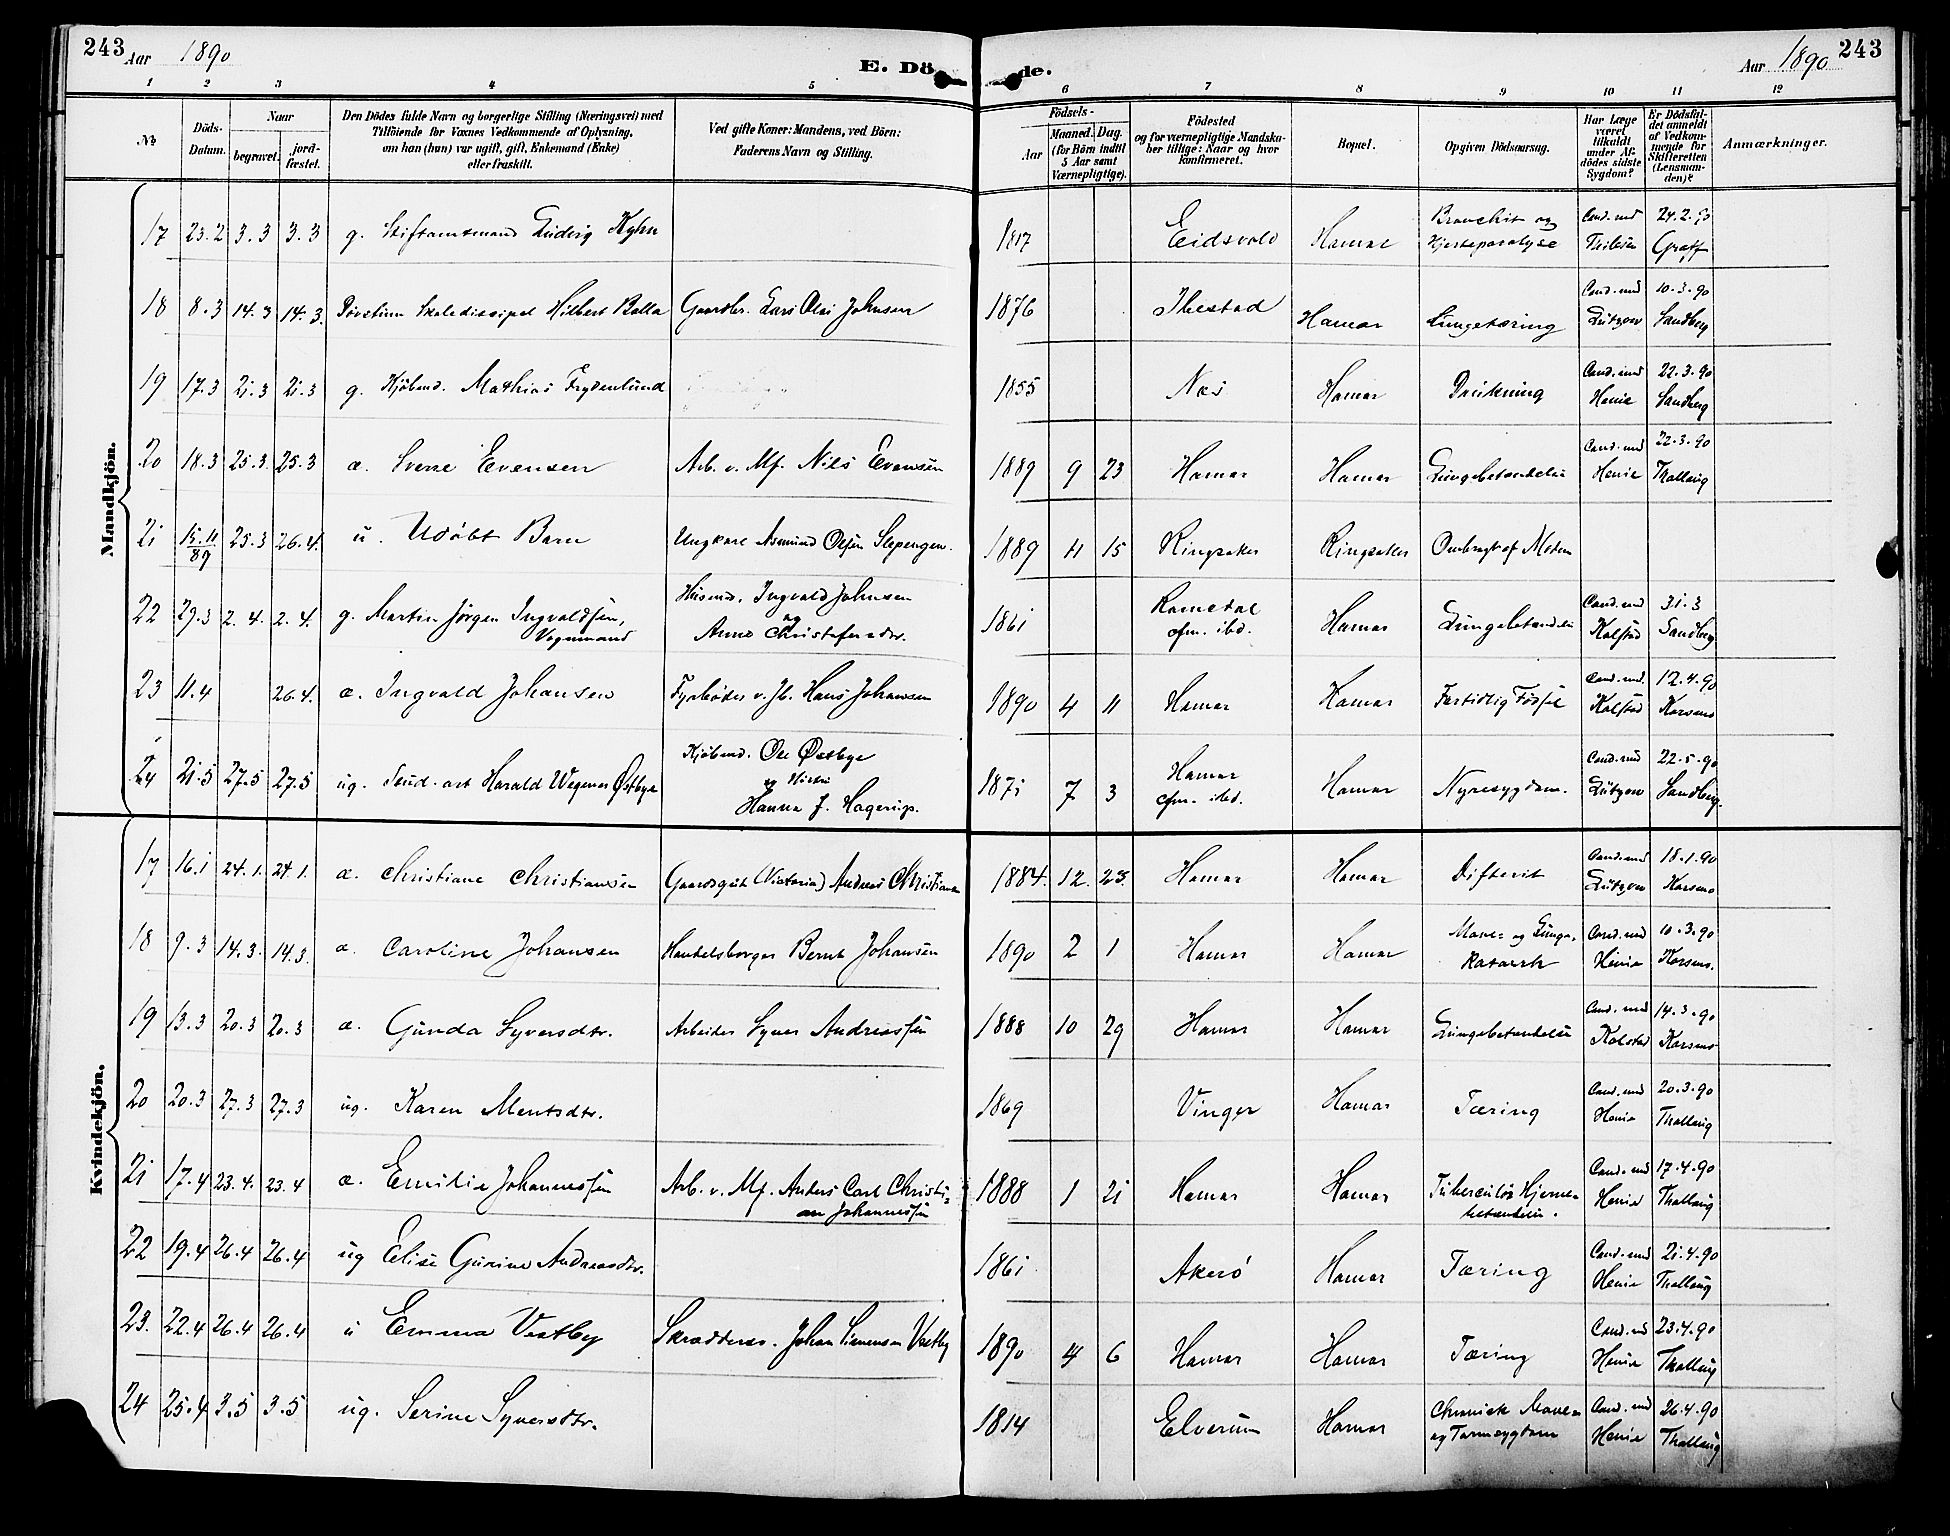 243 Aar 1890 E. Dö de. Aar 1890 243
1 2 3 4 5 6 7 8 9 10 11 12
No. Döds-Datum. Naar begravet. jord-fæstet. Den Dödes fulde Navn og borgerlige Stilling (Næringsvei) med Tilföiende for Voxnes Vedkommende af Oplysning, om han (hun) var ugift, gift, Enkemand (Enke) eller fraskilt. Ved gifte Koner: Mandens, ved Börn: Faderens Navn og Stilling. Födsels- Aar Maaned. Dag. (for Börn indtil 5 Aar samt Værnepligtige). Födested og for værnepligtige Mandskaber tillige: Naar og hvor konfirmeret. Bopæl. Opgiven Dödsaarsag. Har Læge været tilkaldt under Afdödes sidste Sygdom? Er Dödsfaldet anmeldt af Vedkommende for Skifteretten (Lensmanden)? Anmærkninger.
Mandkjön.
17 23.2 3.3 3.3 g. Stiftamtmand Ludvig Kyhn 1817 Eidsvold Hamar Bronchit og Hjerteparalyse Cand. med Thilesen 24.2.90 Graff
18 8.3 14.3 14.3. Døvstum Skoledisipel Hilbert Balla Gaardbr. Lars Olai Johnsen 1876 Ibestad Hamar Lungetæring Cand. med Lützow 10.3.90 Sandberg
19 17.3 21.3 21.3 g. Kjøbmd. Mathias Frydenlund 1855 Nes Hamar Drukning Cand. med Henie 22.3.90 Sandberg
20 18.3 25.3. 25.3 æ. Sverre Evensen Arb. v. Mf. Nils Evensen 1889 9 23 Hamar Hamar Lungebetændelse Cand. med Henie 22.3.90 Thallaug
21 15.11/89 25.3 26.4. u. Udøbt Barn Ungkarl Asmund Olsen Slepengen. 1889 11 15 Ringsaker Ringsaker Ombragt af Moderen
22 29.3 2.4. 2.4. g. Martin Jørgen Ingvaldsen, Vognmand Husmd. Ingvald Johnsen og Anne Christofersdtr. 1861 Romedal cfm. ibd. Hamar Lungebetændelse Cand. med Kolstad 31.3 Sandberg
23 11.4 26.4. æ. Ingvald Johansen Fyrbøder v. Jb. Hans Johansen 1890 4 11 Hamar Hamar Fortidlig Fødsel Cand. med. Kolstad 12.4.90 Korsmo
24 21.5 27.5 27.5 ug. Stud. art Harald Wegener Østbye Kjøbmd. Ole Østbye og Hustru Hanna J. Hagerup. 1871 7 3 Hamar cfm. ibd. Hamar Nyresygdom. Cand. med Lützow 22.5.90 Sandberg.
Kvindekjön.
17 16.1 24.1. 24.1. æ. Christiane Christiansen Gaardsgut (Victoria) Andreas Christiansen 1884. 12. 23. Hamar Hamar Difterit Cand. med Lützow 18.1.90 Korsmo
18 9.3 14.3. 14.3. æ. Caroline Johansen Handelsborger Bernt Johansen 1890 2 1 Hamar Hamar Mave- og Lunge-Katarrh Cand. med Henie 10.3.90 Korsmo.
19 13.3 20.3 20.3 æ. Gunda Syversdtr. Arbeider Syver Andreassen 1888 10 29 Hamar Hamar Lungebetændelse Cand. med Kolstad 14.3.90 Korsmo
20 20.3 27.3 27.3 ug. Karen Mentsdtr. 1869 Vinger Hamar Tæring Cand. med Henie 20.3.90 Thallaug
21 17.4 23.4. 23.4 æ. Emilie Johannessen Arb. v. Mf. Anders Carl Christian Johannessen 1888 1 21 Hamar Hamar Tuberculøs Hjernebetændelse. Cand. med Henie 17.4.90 Thallaug
22 19.4 26.4 26.4 ug Elise Gurine Andreasdtr. 1861 Akerö Hamar Tæring Cand. med Henie 21.4.90 Thallaug
23. 22.4 26.4 26.4 u Emma Vestby Skrædders. Johan Simensen Vestby 1890 4 6 Hamar Hamar Tæring Cand. med Henie 23.4.90 Thallaug
24 25.4 3.5 3.5 ug. Serine Syversdtr. 1814 Elverum Hamar Chronisk Mave- og Tarmsygdom Cand. med Henie 26.4.90 Thallaug